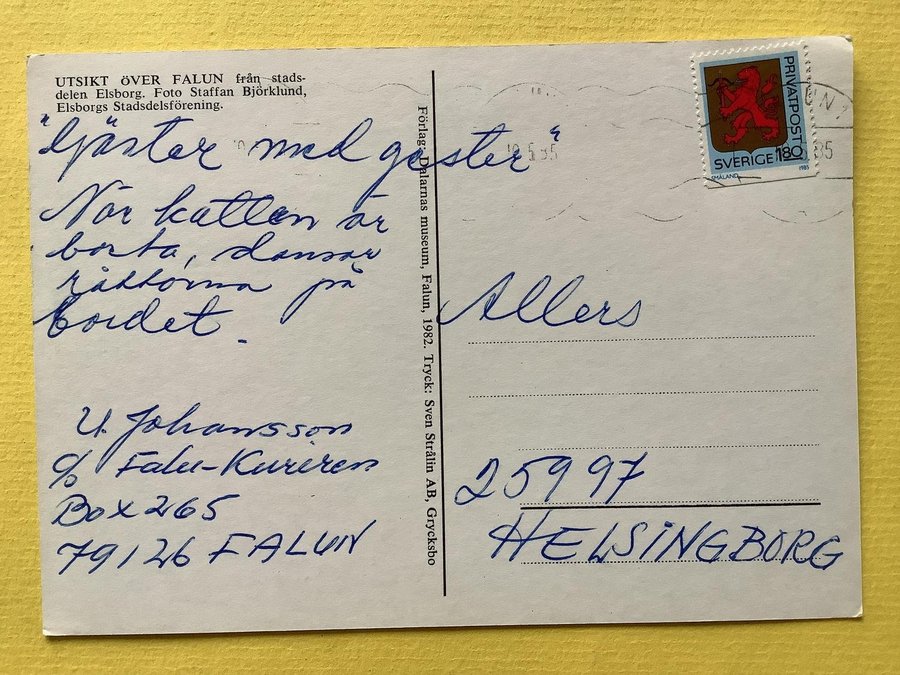 UTSIKT ÖVER FALUN från stads-
delen Elsborg. Foto Staffan Björklund,
Elsborgs Stadsdelsförening.
"Gäster med gester"
När katten är
borta, dansar
råttorna på
bordet.
U. Johansson
c/o Falu-Kuriren
Box 265
79126 FALUN
Förlag: Dalarnas museum, Falun, 1982. Tryck: Sven Strålin AB, Grycksbo
PRIVATPOST
SVERIGE 180
SMÅLAND 1985
Allers
25997
HELSINGBORG